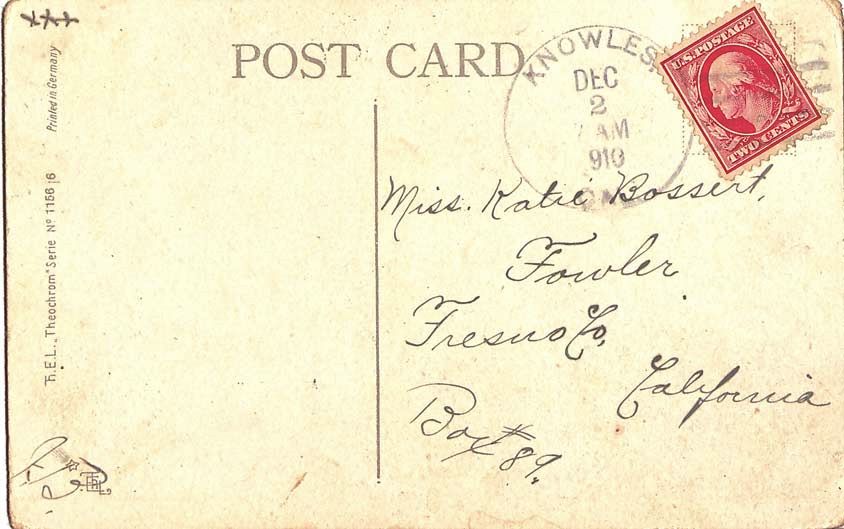 POST CARD
KNOWLES,
DEC
2
7 AM
1910
CAL
U.S. POSTAGE
TWO CENTS
Printed in Germany
T.E.L. „Theochrom" Serie Nº 1156|6
Miss. Katie Bossert,
Fowler
Fresno Co,
California
Box # 89.